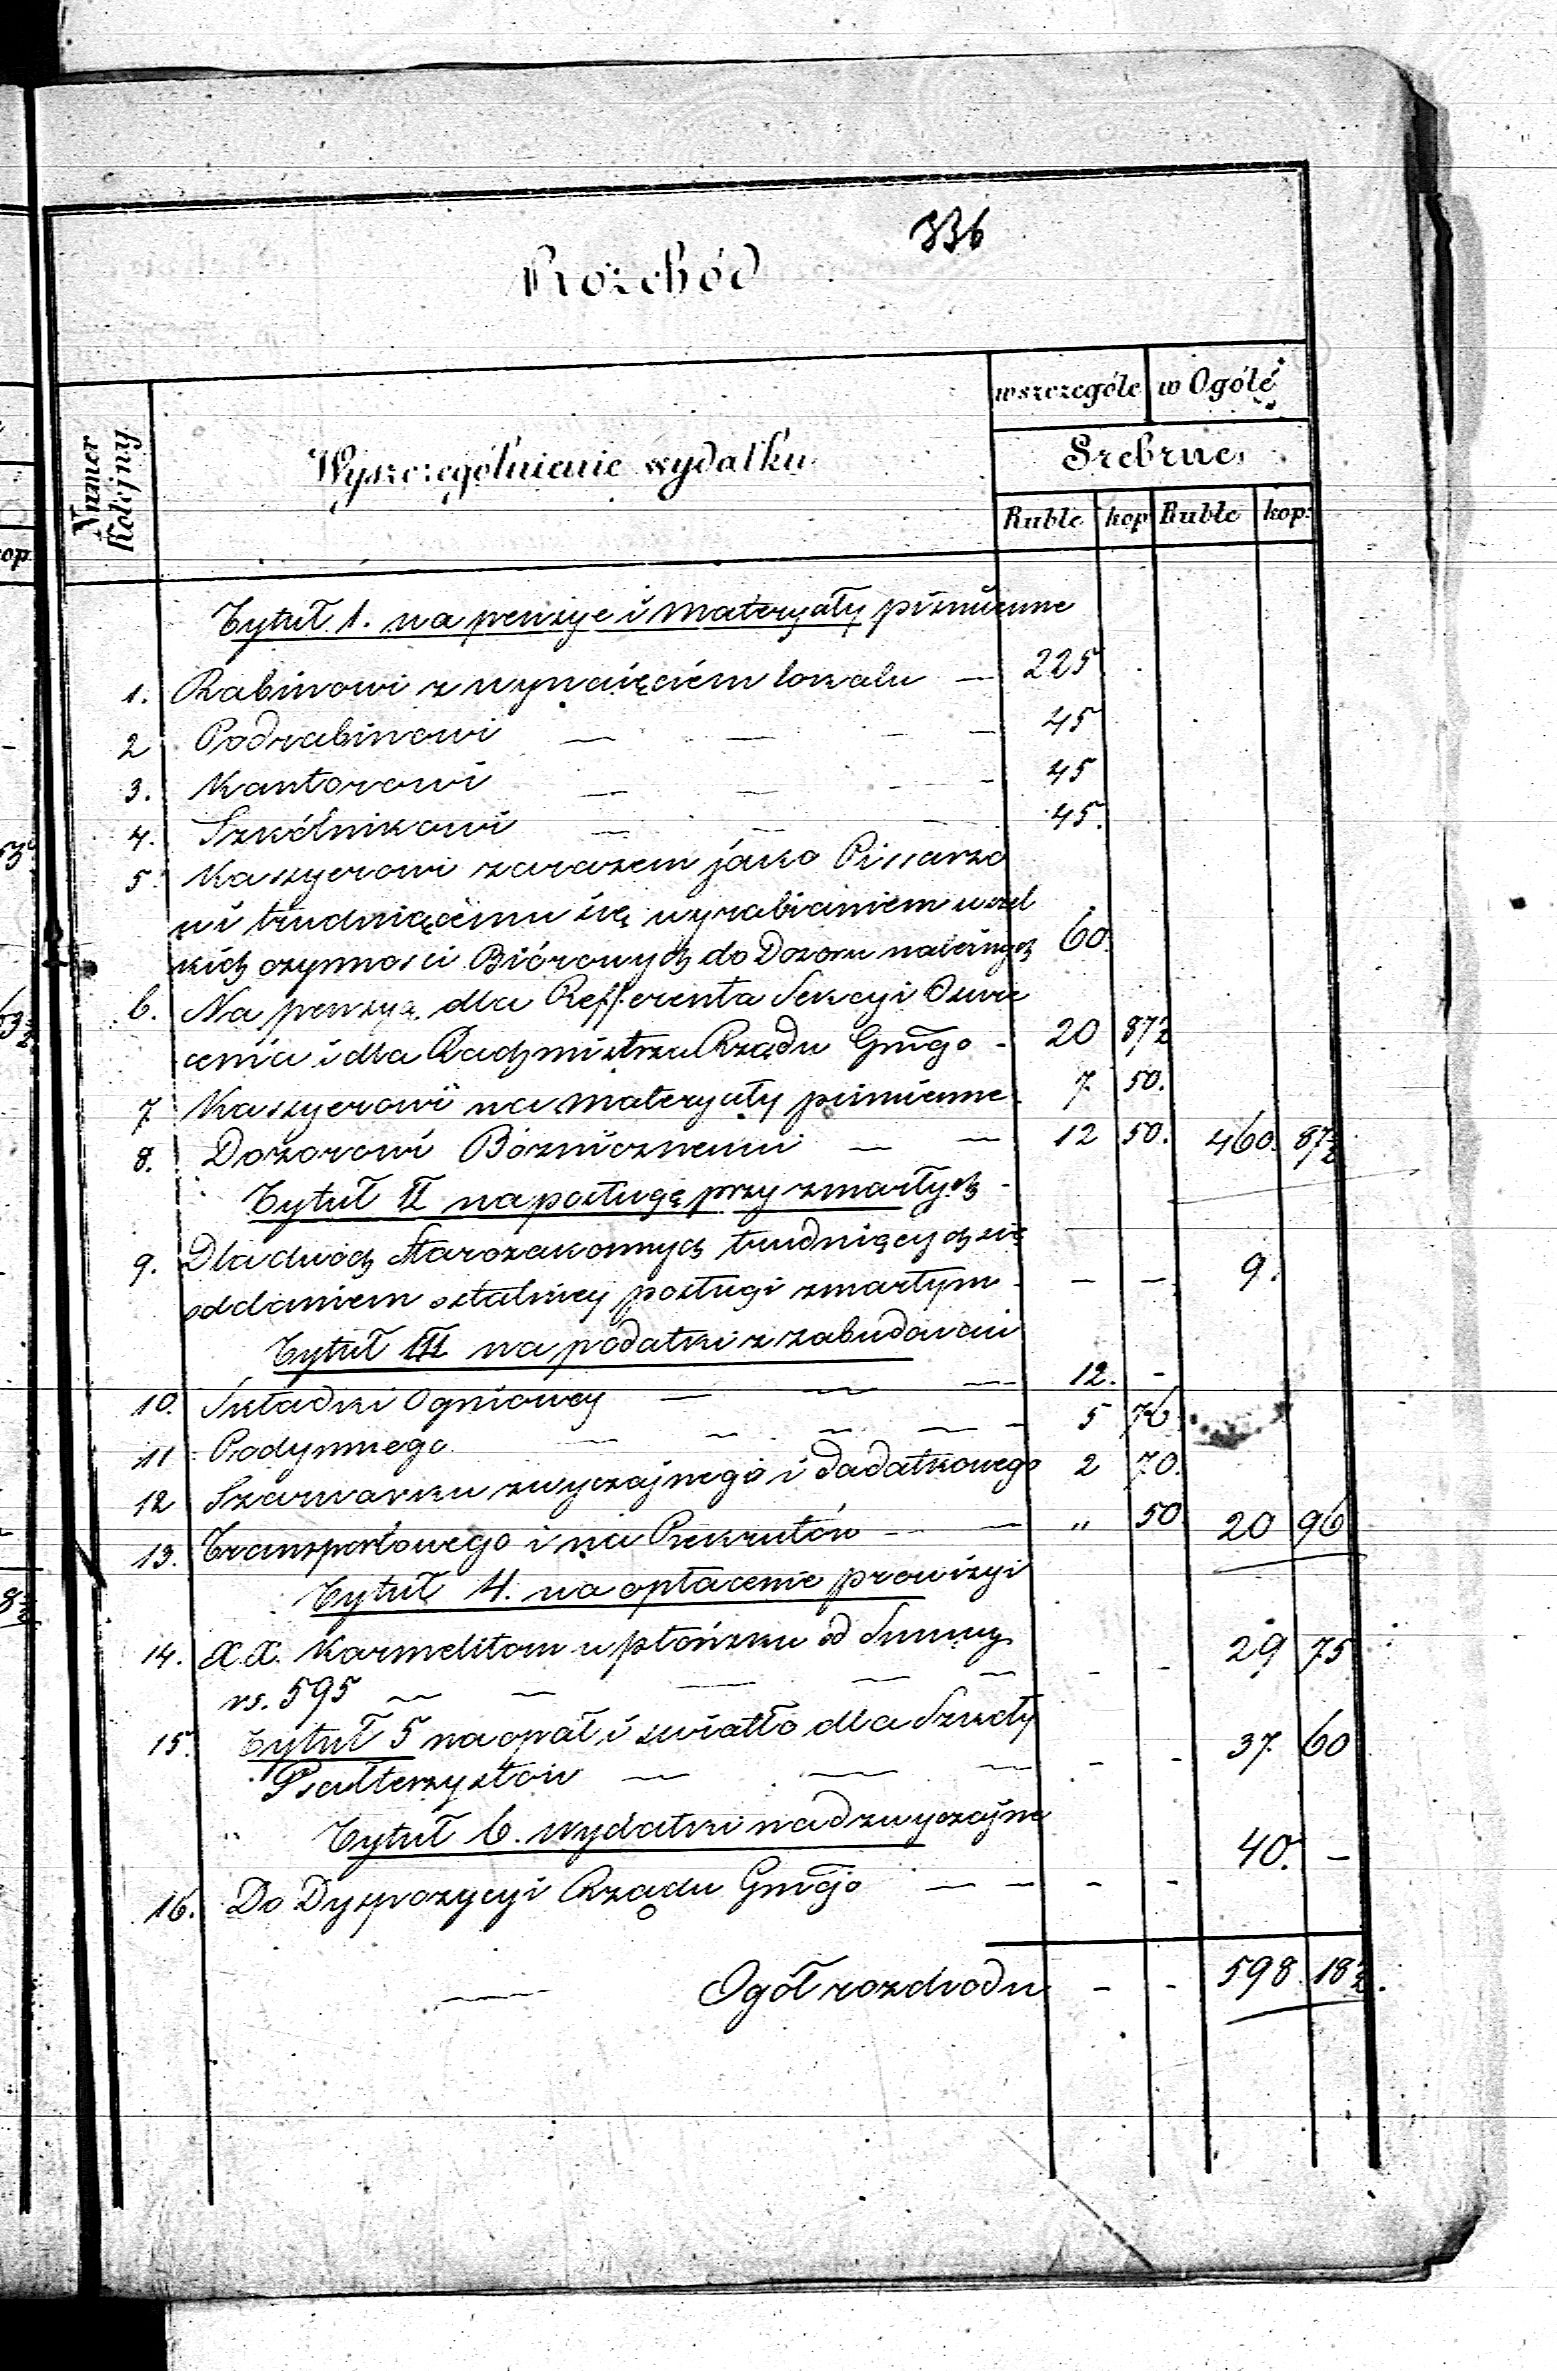 336
Rozchód
Numer Kolejny
Wyszczególnienie wydatku
w szczególe w Ogóle
Srebrne
Ruble kop Ruble kop:
Tytuł 1. na pensye i materyały piśmienne
1. Rabinowi z wynaięciem lokalu — 225
2 Podrabinowi — — — 45
3. Kantorowi — — — 45
4. Szkólnikowi — — — 45.
5. Kassyerowi zarazem jako Pissarzo
wi trudniącemu się wyrabianiem wszel
kich czynności Biórowych do Dozoru należnych 60.
6. Na pensyą dla Refferenta Sekcyi Oswie
cenia i dla Rachmistrza Rządu Gnigo - 20 87½
7. Kassyerowi na materyały piśmienne 7 50.
8. Dozorowi Bóżnicznemu — — 12 50. 460. 87½
Tytuł II na posługę przy zmarłych -
9. Dla dwóch Starozakonnych trudniących się
oddaniem ostatniey posługi zmartym - — — 9.
Tytuł III na podatki z zabudowań
10. Składki Ogniowey — — — 12. -
11 Podymnego — — — — - 5 76
12 Szarwarku zwyczajnego i dodatkowego 2 70.
13. Transportowego i na Rekrutów — — „ 50 20 96
Tytuł 4. na opłacenie prowizyi
14. X.X. Karmelitom w płońsku od Summy
rs. 595 — — — — — - - 29 75
15. Tytuł 5 na opał i swiatło dla Szkoły
Psałterzystów — — — - - 37. 60
„ Tytuł 6. wydatki nadzwyczajne
16. Do Dyspozycyi Rządu Gnigo — — - - 40. —
— Ogół rozchodu - - 598. 18½.